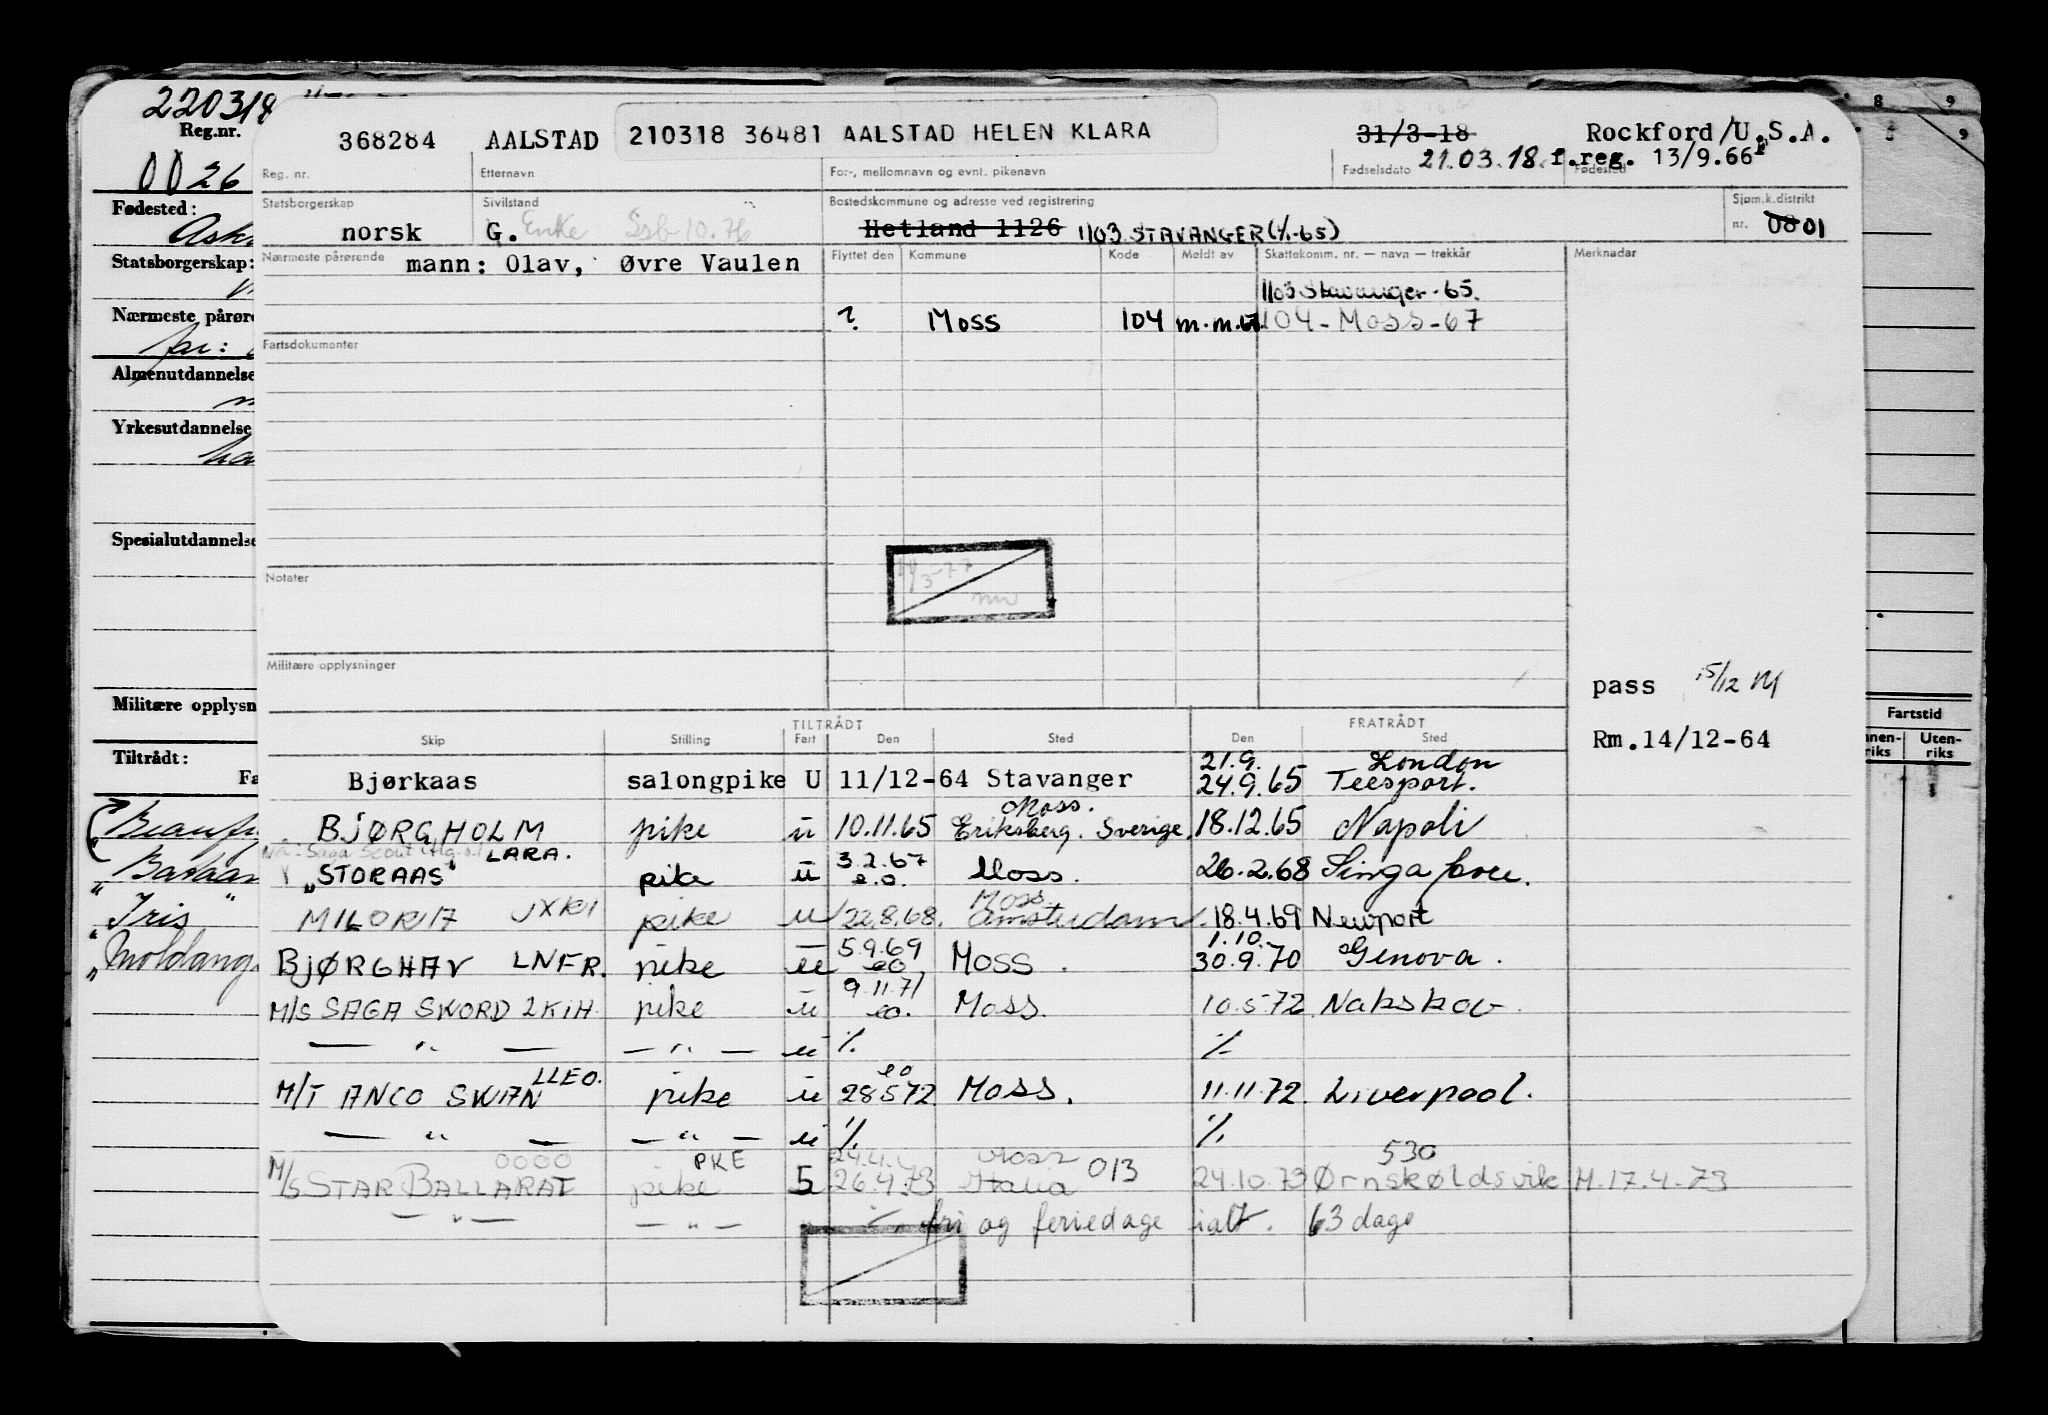 220318
Reg.nr.
0026
Fødested:
Statsborgerskap:
Nærmeste pårøre
far:
Almenutdannelse
Yrkesutdannelse
Spesialutdannelse
Militære opplysn
Tiltrådt:
Fa
Iris
8 9
9
Fartstid
Uten-
riks riks
368284 AALSTAD 210318 36481 AALSTAD HELEN KLARA 31/3-18 Rockford/U.S.A.
21.03.18. f.reg. 13/9.66
Reg. nr. Etternavn For-, mellomnavn og evnl. pikenavn Fødselsdato Fødested
Statsborgerskap Sivilstand Bostedskommune og adresse ved registrering Sjøm.k.distrikt
norsk G. Enke Ssb 10.76 Hetland 1126 1103 STAVANGER (1/1-65) nr. 08 01
Nærmeste pårørende mann: Olav, Øvre Vaulen Flyttet den Kommune Kode Meldt av Skattekomm. nr. — navn — trekkår Merknader
1103 Stavanger-65.
? Moss 104 m.m.67. 104-Moss-67
Fartsdokumenter
Notater
Militære opplysninger
pass 15/12 M
TILTRÅDT FRATRÅDT
Skip Stilling Fart Den Sted Den Sted
Rm.14/12-64
21.9. London
Bjørkaas salongpike U 11/12-64 Stavanger 24.9.65 Teesport.
Moss.
BJØRGHOLM pike u 10.11.65 Eriksberg. Sverige. 18.12.65 Napoli
LARA. 3.2.67
"STORAAS" pike u e.o. Moss. 26.2.68 Singapore.
Moss
MILORIA JXKI pike u 22.8.68. Amsterdam. 18.4.69 Newport
5.9.69 1.10.
BJØRGHAV LNFR. pike u eo Moss. 30.9.70 Genova.
9.11.71
M/S SAGA SKORD LKIH pike u eo. Moss. 10.5.72 Nakskov
— " — — " — u ⁒ ⁒
LLEO. eo
M/T ANCO SKAN pike u 28.5.72 Moss. 11.11.72. Liverpool.
— " — — " — u ⁒ ⁒
0000 PKE 24.4. Moss 530
M/S STAR BALLARAT pike 5 26.4.73 Italia 013 24.10.73 Ørnskøldsvik M.17.4.73
— " — — " — ⁒ fri og feriedage ialt. 63 dage